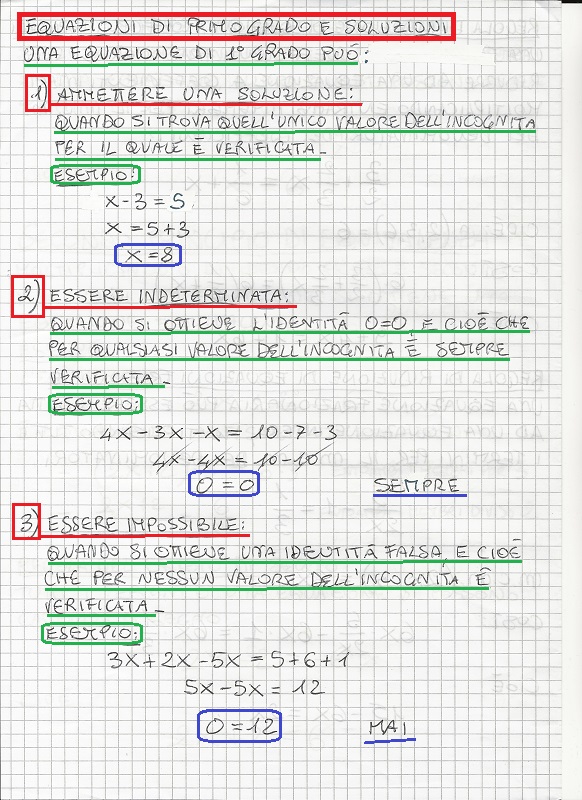 EQUAZIONI DI PRIMO GRADO E SOLUZIONI
UNA EQUAZIONE DI 1° GRADO PUÓ:
1) AMMETTERE UNA SOLUZIONE:
QUANDO SI TROVA QUELL'UNICO VALORE DELL'INCOGNITA
PER IL QUALE É VERIFICATA_
ESEMPIO:
x-3=5
x=5+3
x=8
2) ESSERE INDETERMINATA:
QUANDO SI OTTIENE L'IDENTITÁ 0=0, E CIOÉ CHE
PER QUALSIASI VALORE DELL'INCOGNITA É SEMPRE
VERIFICATA_
ESEMPIO:
4x-3x-x=10-7-3
4x-4x=10-10
0=0 SEMPRE
3) ESSERE IMPOSSIBILE:
QUANDO SI OTTIENE UNA IDENTITÁ FALSA, E CIOÉ
CHE PER NESSUN VALORE DELL'INCOGNITA É
VERIFICATA_
ESEMPIO:
3x+2x-5x=5+6+1
5x-5x=12
0=12 MAI